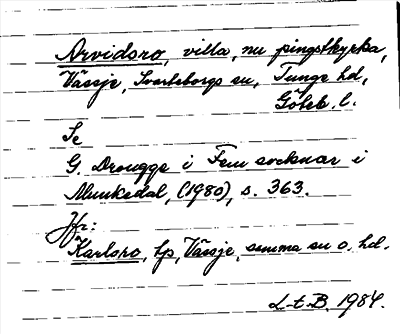 Arvidsro, villa, nu pingstkyrka,
Vässje, Svarteborgs sn, Tunge hd,
Göteb. l.
Se
G. Drougge i Fem socknar i
Munkedal, (1980), s. 363.
Jfr:
Karlsro, lp, Vässje, samma sn o. hd.
L-t B. 1984.